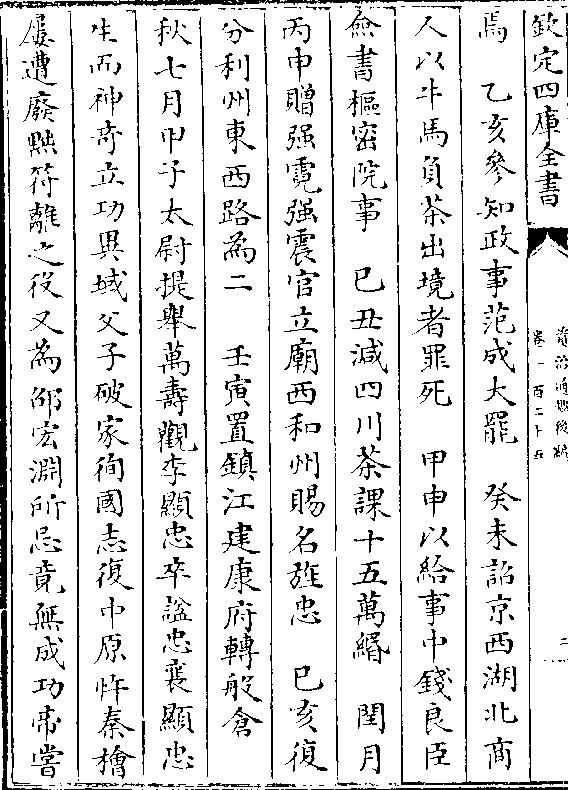 欽定四庫全書
資治通鑑後編
卷一百二十五
二
焉　乙亥參知政事范成大罷　癸未詔京西湖北商
人以牛馬負茶出境者罪死　甲申以給事中錢良臣
僉書樞密院事　已丑減四川茶課十五萬緡　閏月
丙申贈强霓强震官立廟西和州賜名旌忠　已亥復
分利州東西路為二　壬寅置鎮江建康府轉般倉
秋七月甲子太尉提舉萬壽觀李顯忠卒諡忠襄顯忠
生而神奇立功異域父子破家徇國志復中原忤秦檜
屢遭廢黜符離之役又為邵宏淵所忌竟無成功帝嘗